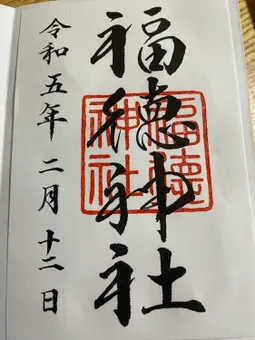 福徳神社
福徳
神社
令和五年 二月 十二日